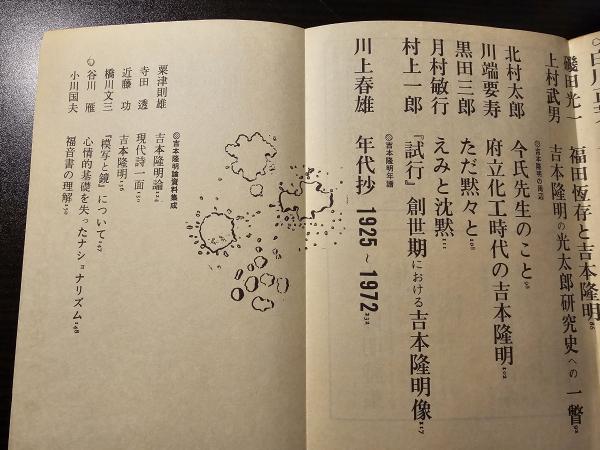 磯田光一 福田恆存と吉本隆明86
上村武男 吉本隆明の光太郎研究史への一瞥92
◎吉本隆明の周辺
北村太郎 今氏先生のこと98
川端要寿 府立化工時代の吉本隆明102
黒田三郎 ただ黙々と108
月村敏行 えみと沈黙111
村上一郎 『試行』創世期における吉本隆明像117
◎吉本隆明年譜
川上春雄 年代抄 1925〜1972 232
◎吉本隆明論資料集成
粟津則雄 吉本隆明論124
寺田 透 現代詩一面130
近藤 功 吉本隆明136
橋川文三 『模写と鏡』について147
谷川 雁 心情的基礎を失ったナショナリズム148
小川国夫 福音書の理解150